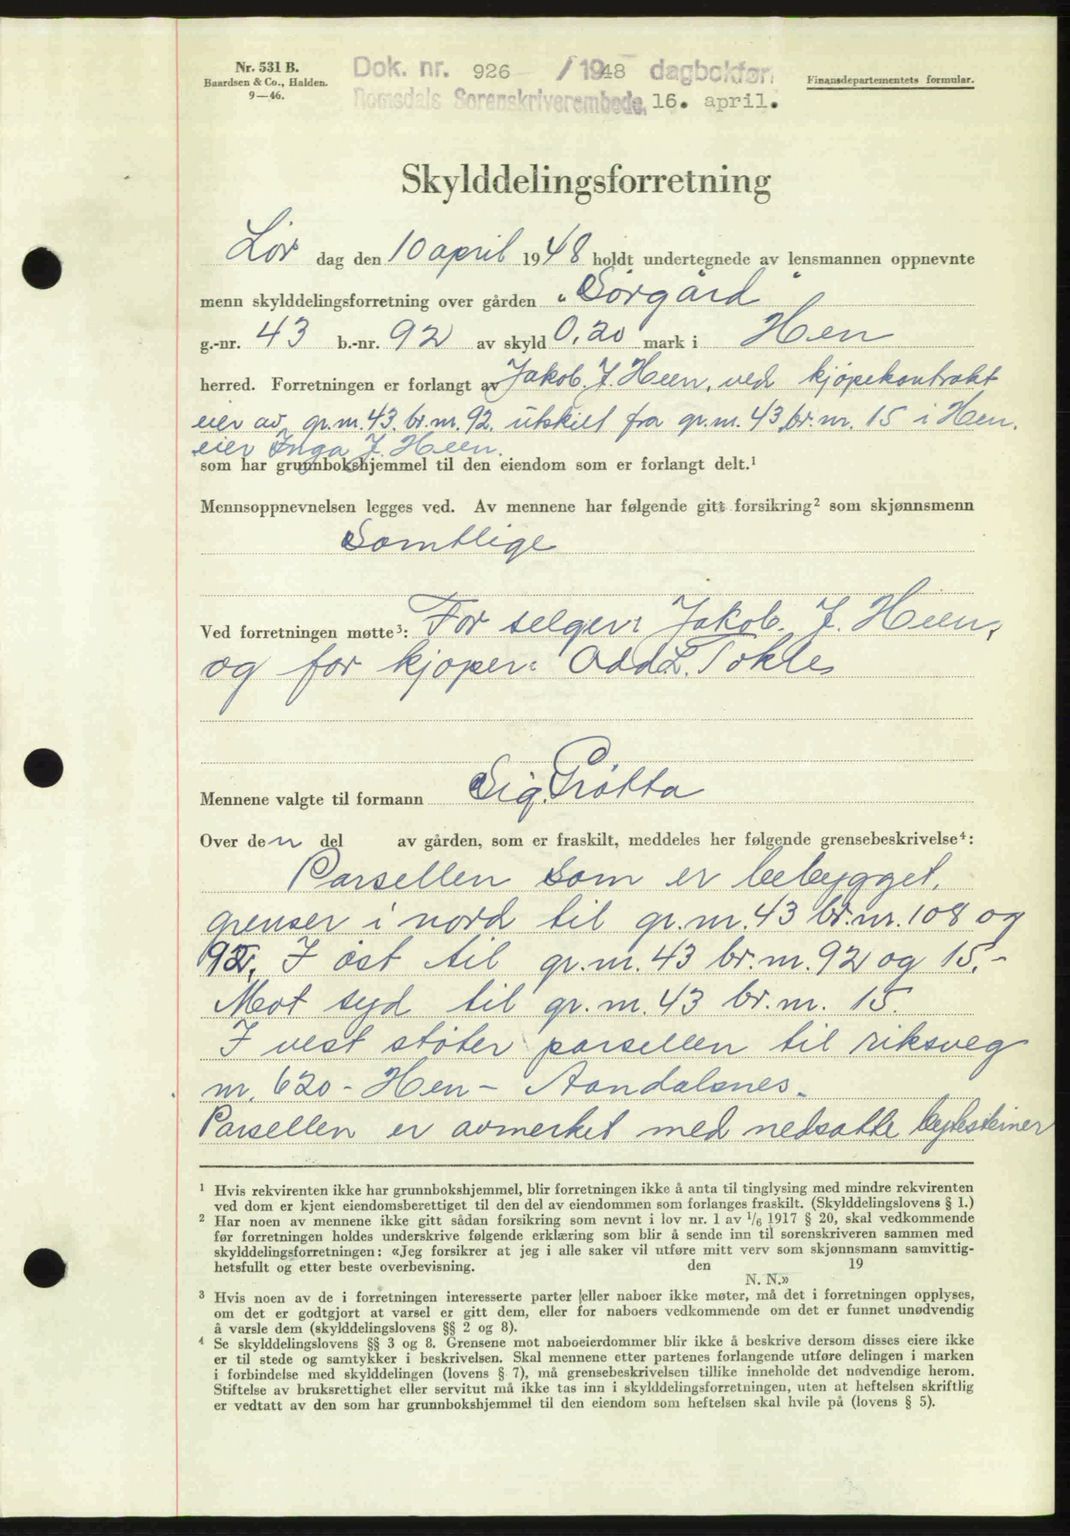 Nr. 531 B.
Baardsen & Co., Halden.
9—46.
Dok. nr. 926 /1948 dagbokført
Romsdals Sorenskriverembede, 16. april.
Finansdepartementets formular.
Skylddelingsforretning
Lør dag den 10 april 1948 holdt undertegnede av lensmannen oppnevnte
menn skylddelingsforretning over gården „Sørgård"
g.-nr. 43 b.-nr. 92 av skyld 0,20 mark i Hen
herred. Forretningen er forlangt av Jakob. J. Heen, ved kjøpekontrakt
eier av gr.nr. 43. br.nr. 92. utskilt fra gr.nr. 43 br.nr. 15 i Hen.
eier Inga J. Heen.
som har grunnbokshjemmel til den eiendom som er forlangt delt.¹
Mennsoppnevnelsen legges ved. Av mennene har følgende gitt forsikring² som skjønnsmenn
Samtlige
Ved forretningen møtte³: For selger: Jakob. J. Heen,
og for kjøper: Odd L. Tokle
Mennene valgte til formann Sig. Grötta
Over den del av gården, som er fraskilt, meddeles her følgende grensebeskrivelse⁴:
Parsellen som er bebygget,
grenser i nord til gr.nr. 43 br.nr. 108 og
92, I øst til gr.nr. 43 br.nr. 92 og 15.-
Mot syd til gr.nr. 43 br.nr. 15.
I vest støter parsellen til riksveg
nr. 620 - Hen - Aandalsnes.
Parsellen er avmerket med nedsatte bytesteiner
¹ Hvis rekvirenten ikke har grunnbokshjemmel, blir forretningen ikke å anta til tinglysing med mindre rekvirenten
ved dom er kjent eiendomsberettiget til den del av eiendommen som forlanges fraskilt. (Skylddelingslovens § 1.)
² Har noen av mennene ikke gitt sådan forsikring som nevnt i lov nr. 1 av 1/6 1917 § 20, skal vedkommende
før forretningen holdes underskrive følgende erklæring som blir å sende inn til sorenskriveren sammen med
skylddelingsforretningen: «Jeg forsikrer at jeg i alle saker vil utføre mitt verv som skjønnsmann samvittig-
hetsfullt og etter beste overbevisning. den 19
N. N.»
³ Hvis noen av de i forretningen interesserte parter eller naboer ikke møter, må det i forretningen opplyses,
om det er godtgjort at varsel er gitt dem, eller for naboers vedkommende om det er funnet unødvendig
å varsle dem (skylddelingslovens §§ 2 og 8).
⁴ Se skylddelingslovens §§ 3 og 8. Grensene mot naboeierdommer blir ikke å beskrive dersom disses eiere ikke
er til stede og samtykker i beskrivelsen. Skal mennene etter partenes forlangende utføre delingen i marken
i forbindelse med skylddelingen (lovens § 7), må grensebeskrivelsen tillike inneholde det nødvendige herom.
Stiftelse av bruksrettighet eller servitut må ikke tas inn i skylddelingsforretningen, uten at heftelsen skriftlig
er vedtatt av den som har grunnbokshjemmel til den eiendom som heftelsen skal hvile på (lovens § 5).